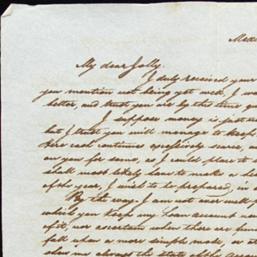 My dear Jolly,
I duly received your
you mention not being yet well, I
better, and trust you are by this time
I suppose money is just
but I trust you will manage to keep
Here cash continues scarce,
on you for some, as I could place to
shall most likely have to make a
of the year, I wish to be prepared, in
By the way, I am not over well
which you keep my Loan account
of it, nor ascertain when there are
fall upon a more simple mode, or
show me always the state of the Account